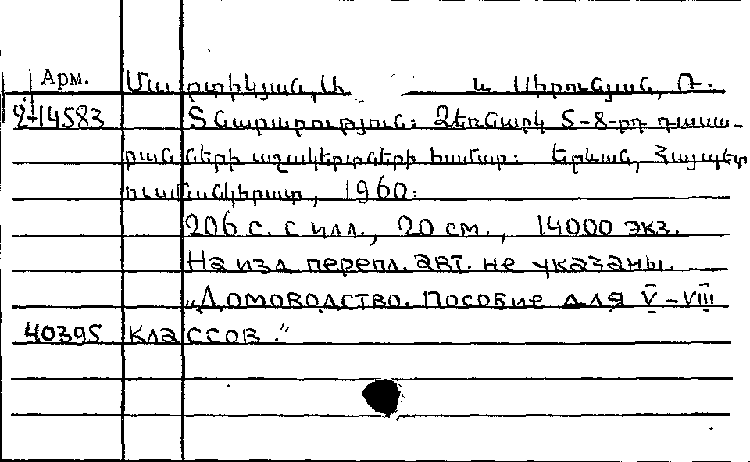 Арм. Մարտիկյան, Ա և Սիրունյան, Ռ.
2-14583 Տնարարություն: Ձեռնարկ 5-8-րդ դասա-
րանների աշակերտների համար: Երևան, Հայպետ
ուսմանկհրատ, 1960:
206 с. с илл., 20 см., 14000 экз.
На изд перепл. авт. не указаны.
„Домоводство. Пособие для V-VIII
40395 классов."